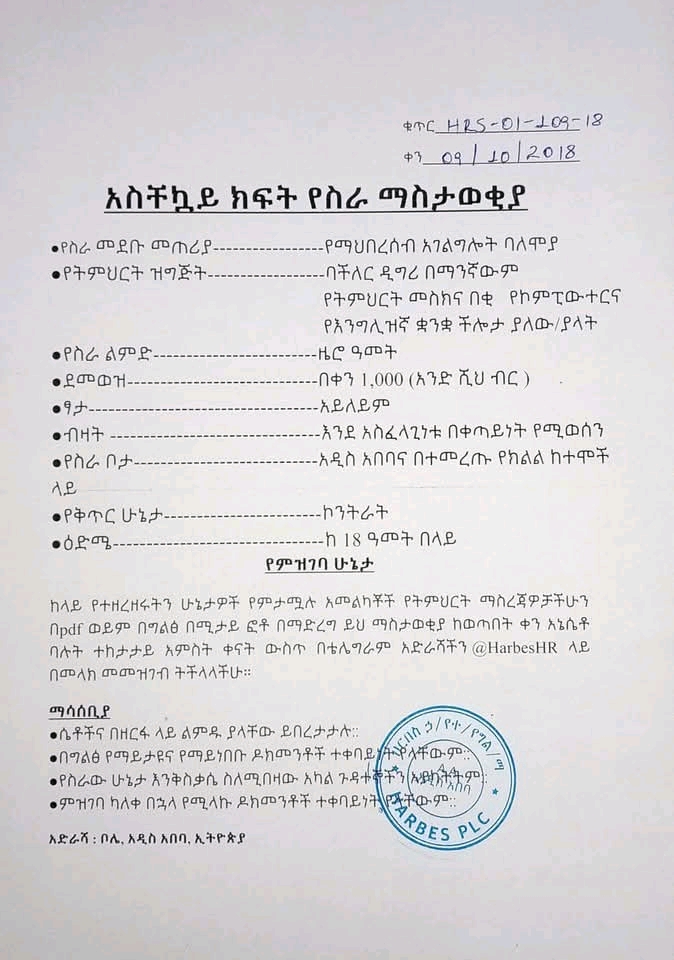 ቁጥር HRS-01-109-18
ቀን 09/10/2018
አስቸኳይ ክፍት የስራ ማስታወቂያ
●የስራ መደቡ መጠሪያ----------------የማህበረሰብ አገልግሎት ባለሞያ
●የትምህርት ዝግጅት-----------------ባችለር ዲግሪ በማንኛውም
የትምህርት መስክና በቂ የኮምፒውተርና
የእንግሊዝኛ ቋንቋ ችሎታ ያለው/ያላት
●የስራ ልምድ-------------------------ዜሮ ዓመት
●ደመወዝ-----------------------------በቀን 1,000 (አንድ ሺህ ብር )
●ፃታ-----------------------------------አይለይም
●ብዛት --------------------------------እንደ አስፈላጊነቱ በቀጣይነት የሚወሰን
●የስራ ቦታ----------------------------አዲስ አበባና በተመረጡ የክልል ከተሞች
ላይ
●የቅጥር ሁኔታ------------------------ኮንትራት
●ዕድሜ--------------------------------ከ 18 ዓመት በላይ
የምዝገባ ሁኔታ
ከላይ የተዘረዘሩትን ሁኔታዎች የምታሟሉ አመልካቾች የትምህርት ማስረጃዎቻችሁን
በpdf ወይም በግልፅ በሚታይ ፎቶ በማድረግ ይህ ማስታወቂያ ከወጣበት ቀን አኔሴቶ
ባሉት ተከታታይ አምስት ቀናት ውስጥ በቴሌግራም አድራሻችን @HarbesHR ላይ
በመላክ መመዝገብ ትችላላችሁ።
ማሳሰቢያ
●ሴቶችና በዘርፋ ላይ ልምዱ ያላቸው ይበረታታሉ::
●በግልፅ የማይታዩና የማይነበቡ ዶክመንቶች ተቀባይነት የላቸውም::
●የስራው ሁኔታ እንቅስቃሴ ስለሚበዛው አካል ጉዳተኞችን አያካትትም::
●ምዝገባ ካለቀ በኋላ የሚላኩ ዶክመንቶች ተቀባይነት የላቸውም::
አድራሻ : ቦሌ, አዲስ አበባ, ኢትዮጵያ
ሃርበስ ኃ/የተ/የግል/ማ
አዲስ አበባ
HARBES PLC